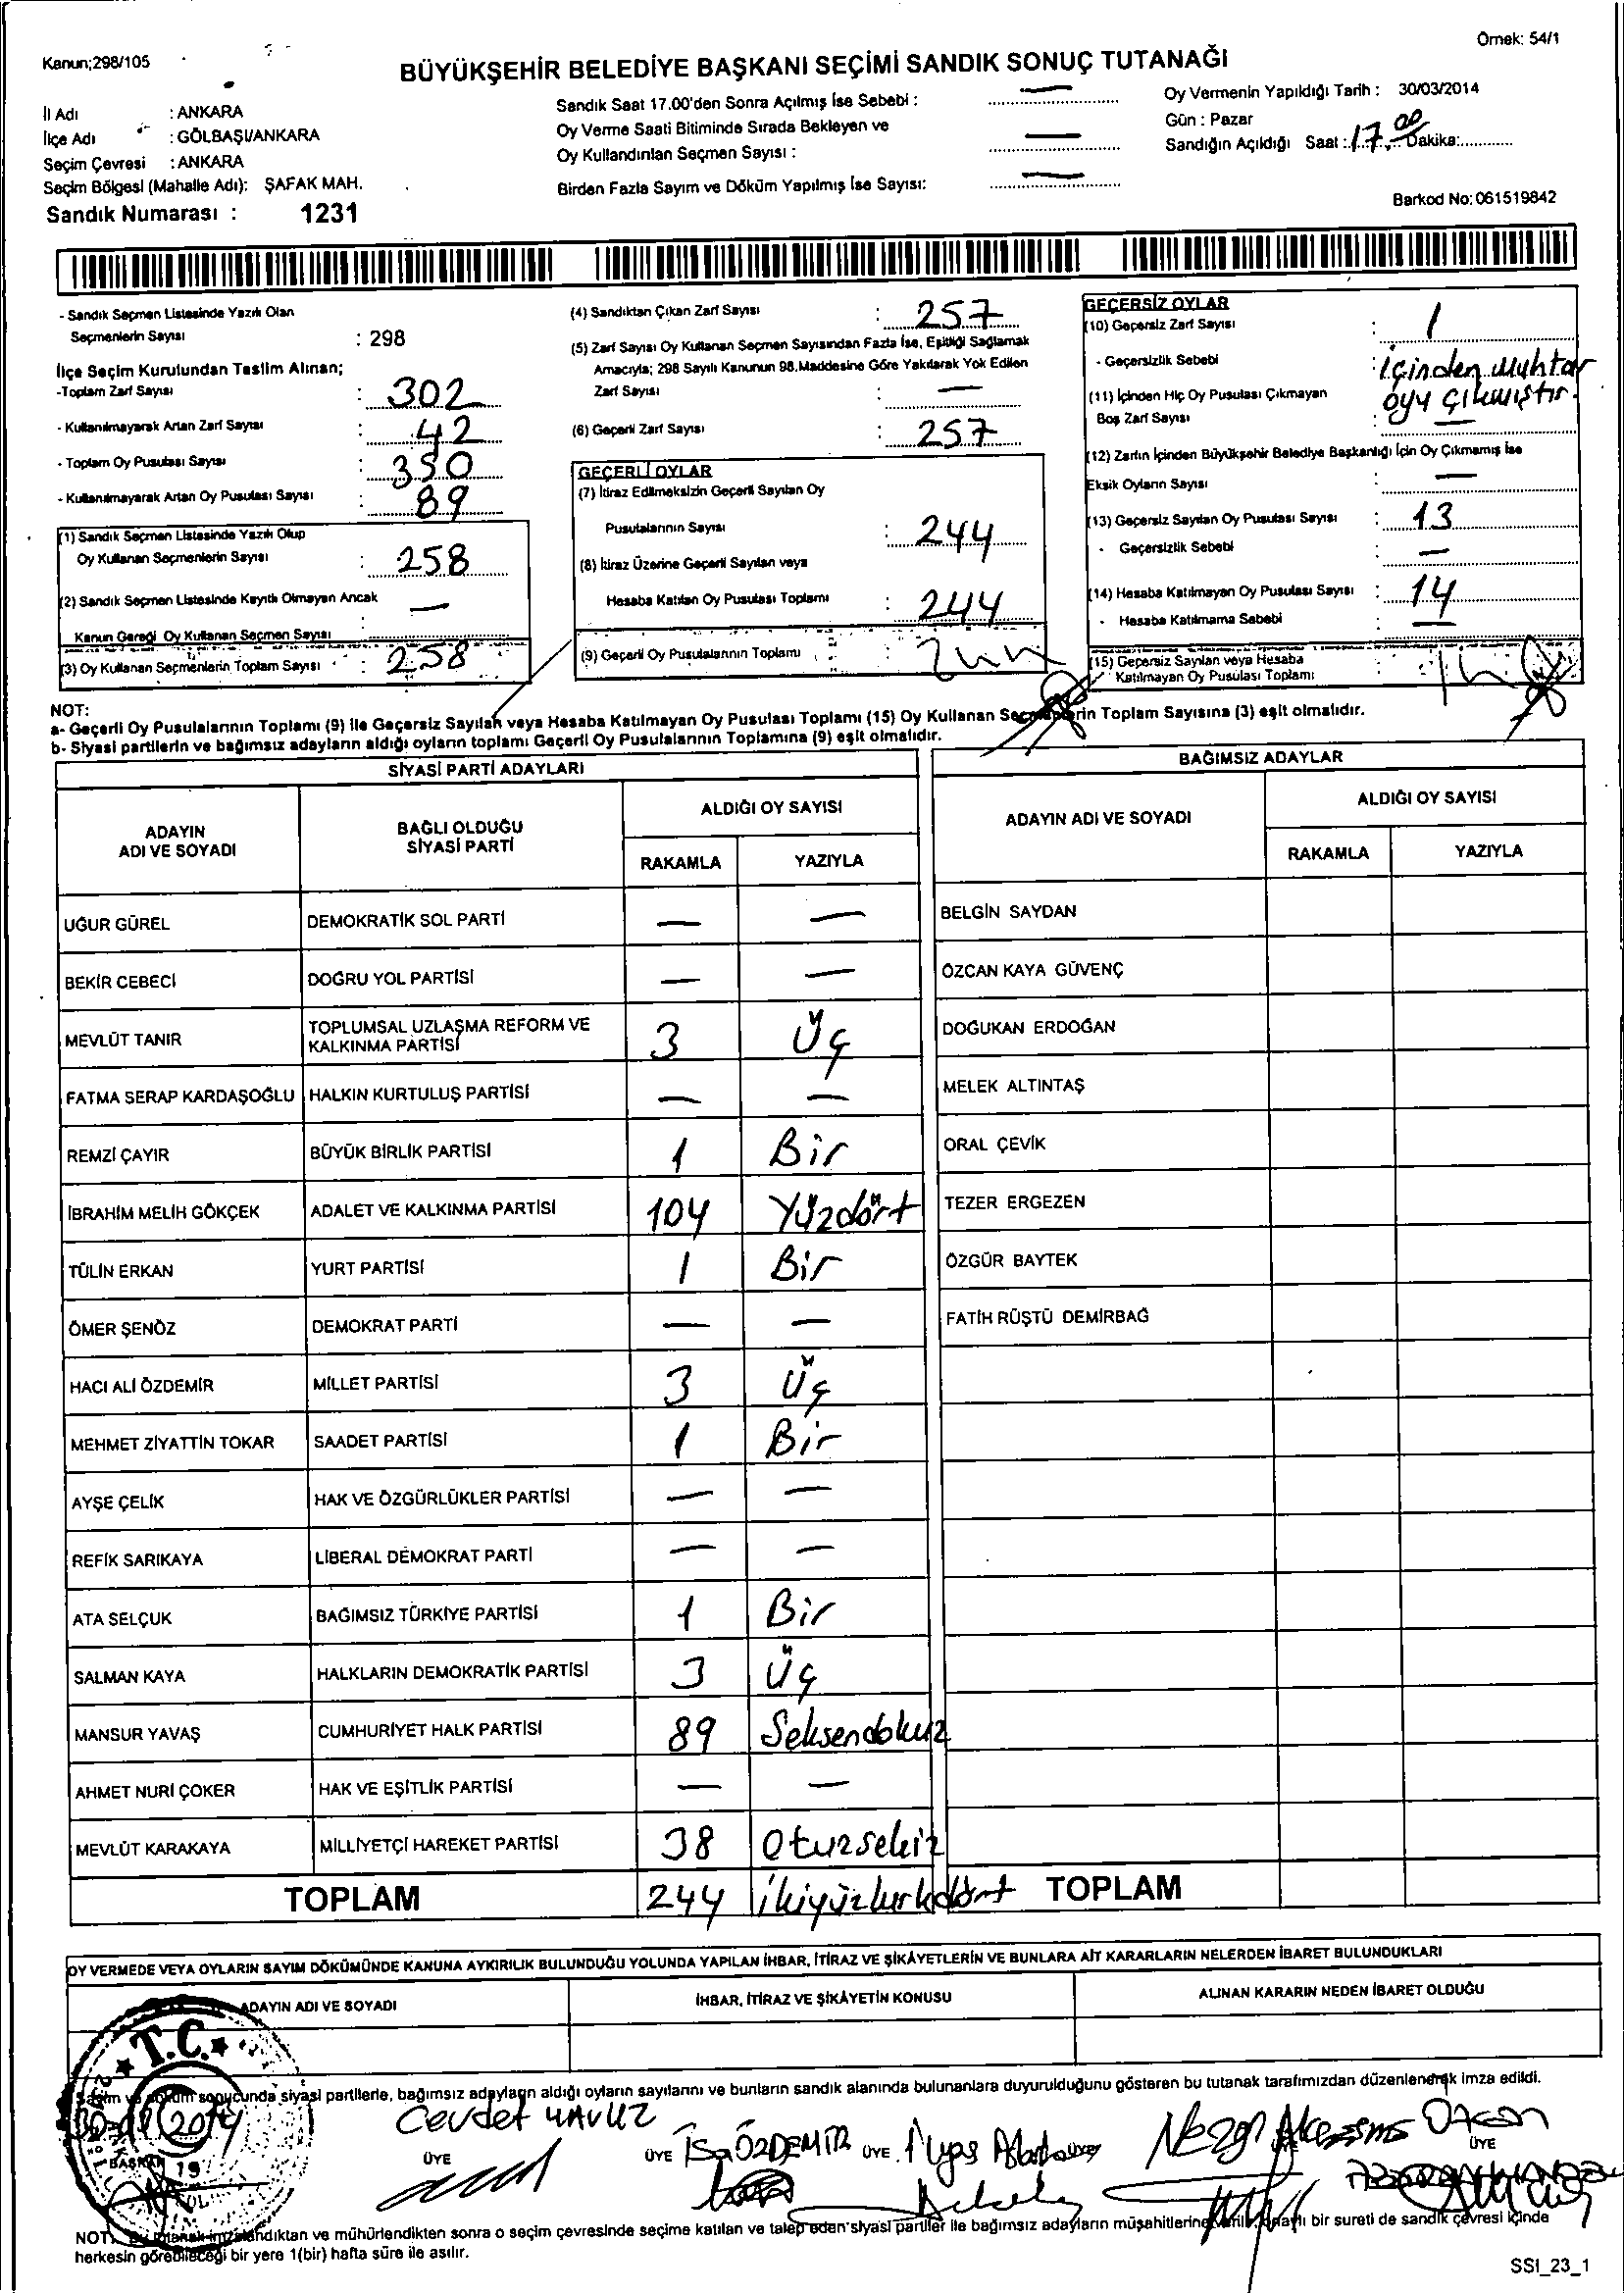 Kanun;298/105
Örnek: 54/1
BÜYÜKŞEHİR BELEDİYE BAŞKANI SEÇİMİ SANDIK SONUÇ TUTANAĞI
İl Adı : ANKARA
İlçe Adı : GÖLBAŞI/ANKARA
Seçim Çevresi : ANKARA
Seçim Bölgesi (Mahalle Adı): ŞAFAK MAH.
Sandık Numarası : 1231
Sandık Saat 17.00'den Sonra Açılmış İse Sebebi : —
Oy Verme Saati Bitiminde Sırada Bekleyen ve
Oy Kullandırılan Seçmen Sayısı : —
Birden Fazla Sayım ve Döküm Yapılmış İse Sayısı: —
Oy Vermenin Yapıldığı Tarih : 30/03/2014
Gün : Pazar
Sandığın Açıldığı Saat : 17 00 Dakika:
Barkod No: 061519842
- Sandık Seçmen Listesinde Yazılı Olan
Seçmenlerin Sayısı : 298
İlçe Seçim Kurulundan Teslim Alınan;
-Toplam Zarf Sayısı : 302
- Kullanılmayarak Artan Zarf Sayısı : 42
- Toplam Oy Pusulası Sayısı : 350
- Kullanılmayarak Artan Oy Pusulası Sayısı : 89
(1) Sandık Seçmen Listesinde Yazılı Olup
Oy Kullanan Seçmenlerin Sayısı : 258
(2) Sandık Seçmen Listesinde Kayıtlı Olmayan Ancak
Kanun Gereği Oy Kullanan Seçmen Sayısı : —
(3) Oy Kullanan Seçmenlerin Toplam Sayısı : 258
(4) Sandıktan Çıkan Zarf Sayısı : 257
(5) Zarf Sayısı Oy Kullanan Seçmen Sayısından Fazla İse, Eşitliği Sağlamak
Amacıyla; 298 Sayılı Kanunun 98.Maddesine Göre Yakılarak Yok Edilen
Zarf Sayısı : —
(6) Geçerli Zarf Sayısı : 257
GEÇERLİ OYLAR
(7) İtiraz Edilmeksizin Geçerli Sayılan Oy
Pusulalarının Sayısı : 244
(8) İtiraz Üzerine Geçerli Sayılan veya
Hesaba Katılan Oy Pusulası Toplamı : 244
(9) Geçerli Oy Pusulalarının Toplamı : 244
GEÇERSİZ OYLAR
(10) Geçersiz Zarf Sayısı : 1
- Geçersizlik Sebebi : İçinden Muhtar
oyu çıkmıştır.
(11) İçinden Hiç Oy Pusulası Çıkmayan
Boş Zarf Sayısı : —
(12) Zarfın İçinden Büyükşehir Belediye Başkanlığı İçin Oy Çıkmamış İse
Eksik Oyların Sayısı : —
(13) Geçersiz Sayılan Oy Pusulası Sayısı : 13
- Geçersizlik Sebebi : —
(14) Hesaba Katılmayan Oy Pusulası Sayısı : 14
- Hesaba Katılmama Sebebi : —
(15) Geçersiz Sayılan veya Hesaba
Katılmayan Oy Pusulası Toplamı : 14
NOT:
a- Geçerli Oy Pusulalarının Toplamı (9) ile Geçersiz Sayılan veya Hesaba Katılmayan Oy Pusulası Toplamı (15) Oy Kullanan Seçmenlerin Toplam Sayısına (3) eşit olmalıdır.
b- Siyasi partilerin ve bağımsız adayların aldığı oyların toplamı Geçerli Oy Pusulalarının Toplamına (9) eşit olmalıdır.
SİYASİ PARTİ ADAYLARI
ADAYIN ADI VE SOYADI BAĞLI OLDUĞU SİYASİ PARTİ ALDIĞI OY SAYISI
RAKAMLA YAZIYLA
UĞUR GÜREL DEMOKRATİK SOL PARTİ — —
BEKİR CEBECİ DOĞRU YOL PARTİSİ — —
MEVLÜT TANIR TOPLUMSAL UZLAŞMA REFORM VE KALKINMA PARTİSİ 3 Üç
FATMA SERAP KARDAŞOĞLU HALKIN KURTULUŞ PARTİSİ — —
REMZİ ÇAYIR BÜYÜK BİRLİK PARTİSİ 1 Bir
İBRAHİM MELİH GÖKÇEK ADALET VE KALKINMA PARTİSİ 104 Yüzdört
TÜLİN ERKAN YURT PARTİSİ 1 Bir
ÖMER ŞENÖZ DEMOKRAT PARTİ — —
HACI ALİ ÖZDEMİR MİLLET PARTİSİ 3 Üç
MEHMET ZİYATTİN TOKAR SAADET PARTİSİ 1 Bir
AYŞE ÇELİK HAK VE ÖZGÜRLÜKLER PARTİSİ — —
REFİK SARIKAYA LİBERAL DEMOKRAT PARTİ — —
ATA SELÇUK BAĞIMSIZ TÜRKİYE PARTİSİ 1 Bir
SALMAN KAYA HALKLARIN DEMOKRATİK PARTİSİ 3 Üç
MANSUR YAVAŞ CUMHURİYET HALK PARTİSİ 89 Seksendokuz
AHMET NURİ ÇOKER HAK VE EŞİTLİK PARTİSİ — —
MEVLÜT KARAKAYA MİLLİYETÇİ HAREKET PARTİSİ 38 Otuzsekiz
TOPLAM 244 ikiyüzkırkdört
BAĞIMSIZ ADAYLAR
ADAYIN ADI VE SOYADI ALDIĞI OY SAYISI
RAKAMLA YAZIYLA
BELGİN SAYDAN
ÖZCAN KAYA GÜVENÇ
DOĞUKAN ERDOĞAN
MELEK ALTINTAŞ
ORAL ÇEVİK
TEZER ERGEZEN
ÖZGÜR BAYTEK
FATİH RÜŞTÜ DEMİRBAĞ
TOPLAM
OY VERMEDE VEYA OYLARIN SAYIM DÖKÜMÜNDE KANUNA AYKIRILIK BULUNDUĞU YOLUNDA YAPILAN İHBAR, İTİRAZ VE ŞİKÂYETLERİN VE BUNLARA AİT KARARLARIN NELERDEN İBARET BULUNDUKLARI
ADAYIN ADI VE SOYADI İHBAR, İTİRAZ VE ŞİKÂYETİN KONUSU ALINAN KARARIN NEDEN İBARET OLDUĞU
T.C.
Seçim ve döküm sonucunda siyasi partilerle, bağımsız adayların aldığı oyların sayılarını ve bunların sandık alanında bulunanlara duyurulduğunu gösteren bu tutanak tarafımızdan düzenlenerek imza edildi.
2014
BAŞKAN
Cevdet YAVUZ
ÜYE
ÜYE İSA ÖZDEMİR
ÜYE İlyas
ÜYE
NOT: Bu tutanak imzalandıktan ve mühürlendikten sonra o seçim çevresinde seçime katılan ve talep eden siyasi partiler ile bağımsız adayların müşahitlerine verilir, onaylı bir sureti de sandık çevresi içinde
herkesin görebileceği bir yere 1(bir) hafta süre ile asılır.
SSI_23_1